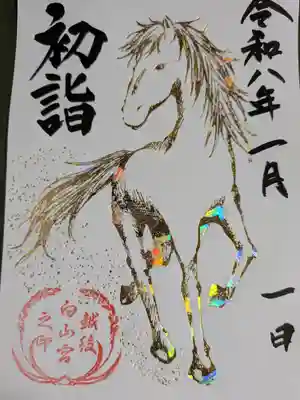 令和八年一月一日
初詣
越段
白山宮
之印